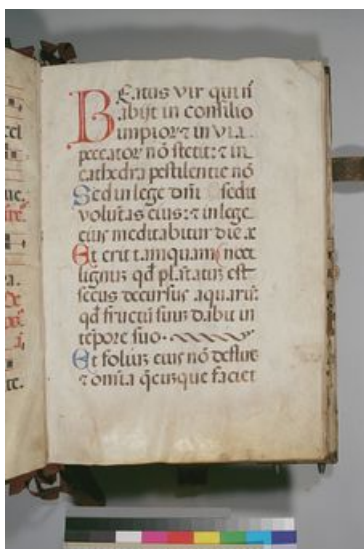 cel
ne.
ra.
te.
Beatus vir qui nō
abijt in consilio
impioꝝ ⁊ in via
peccatoꝝ nō stetit: ⁊ in
cathedra pestilentie nō
Sed in lege dñi sedit
volūtas eius: ⁊ in lege
eius meditabitur die ac
Et erit tamquam nocte
lignuʒ qđ plātatuʒ est
secus decursus aquaruʒ:
qđ fructū suuʒ dabit in
tēpore suo.
Et foliuʒ eius nō defluet
⁊ omīa q̄cūqʒ faciet